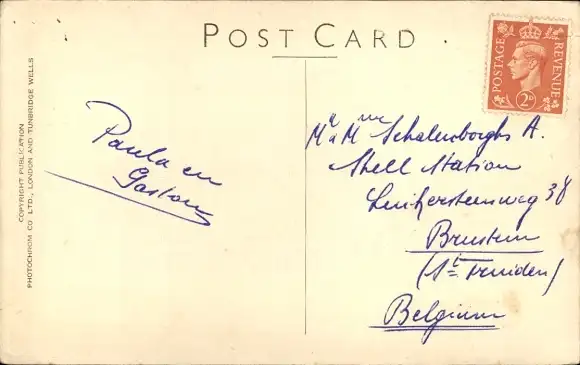 POST CARD
POSTAGE
REVENUE
2D
COPYRIGHT PUBLICATION
PHOTOCHROM CO LTD., LONDON AND TUNBRIDGE WELLS
Paula en
Gaston
Mr & Mme Schalenborghs A.
Shell Station
Luikersteenweg 38
Brustem
(St Truiden)
Belgium